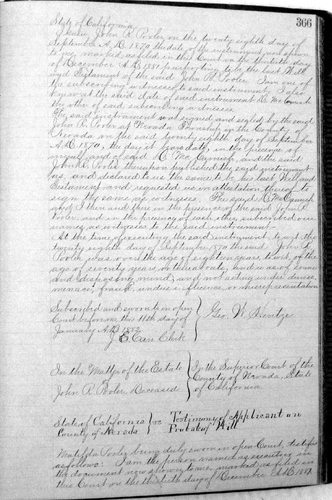 366
State of California
I knew John R. Pooler on the twenty eighth day of
September A.D. 1870, the date of the instrument now shown
to me, marked as filed in this Court on the thirtieth day
of December A.D. 1881 purporting to be the last Will
and Testament of the said John R. Pooler. I am one of
the subscribing witnesses to said instrument. I also
knew at the date of said instrument
the other of said subscribing witnesses
The said instrument was signed and sealed by the said
John R. Pooler at Nevada in the County of
Nevada on the said twenty eighth day of September
A.D. 1870, the day it bears date, in the presence of
myself and of said and the said
John R. Pooler thereupon published the said instrument
as, and declared to us the same to be his last Will and
Testament and requested us in attestation thereof to
sign the same as witnesses. The said
and I then and there in the presence of the said John R.
Pooler and in the presence of each other subscribed our
names as witnesses to the said instrument
At the time of executing the said instrument, to wit the
twenty eighth day of September 1870 the said John R.
Pooler was over the age of eighteen years to wit, of the
age of seventy years or thereabouts, and was of sound
and disposing mind, and not acting under duress
menace, fraud, undue influence, or misrepresentation
Subscribed and sworn to in open
Court before me this 11th day of
January A.D. 1882
Geo. W.
Clerk
In the Matter of the Estate
of
John R. Pooler Deceased
In the Superior Court of the
County of Nevada, State
of California
State of California
County of Nevada
ss
Testimony of Applicant on
Probate of Will
Matilda Pooler being duly sworn in open Court, testified
as follows: I am the person named as executrix in
the document now shown to me, marked as filed in
this Court on the thirtieth day of December A.D. 1881.